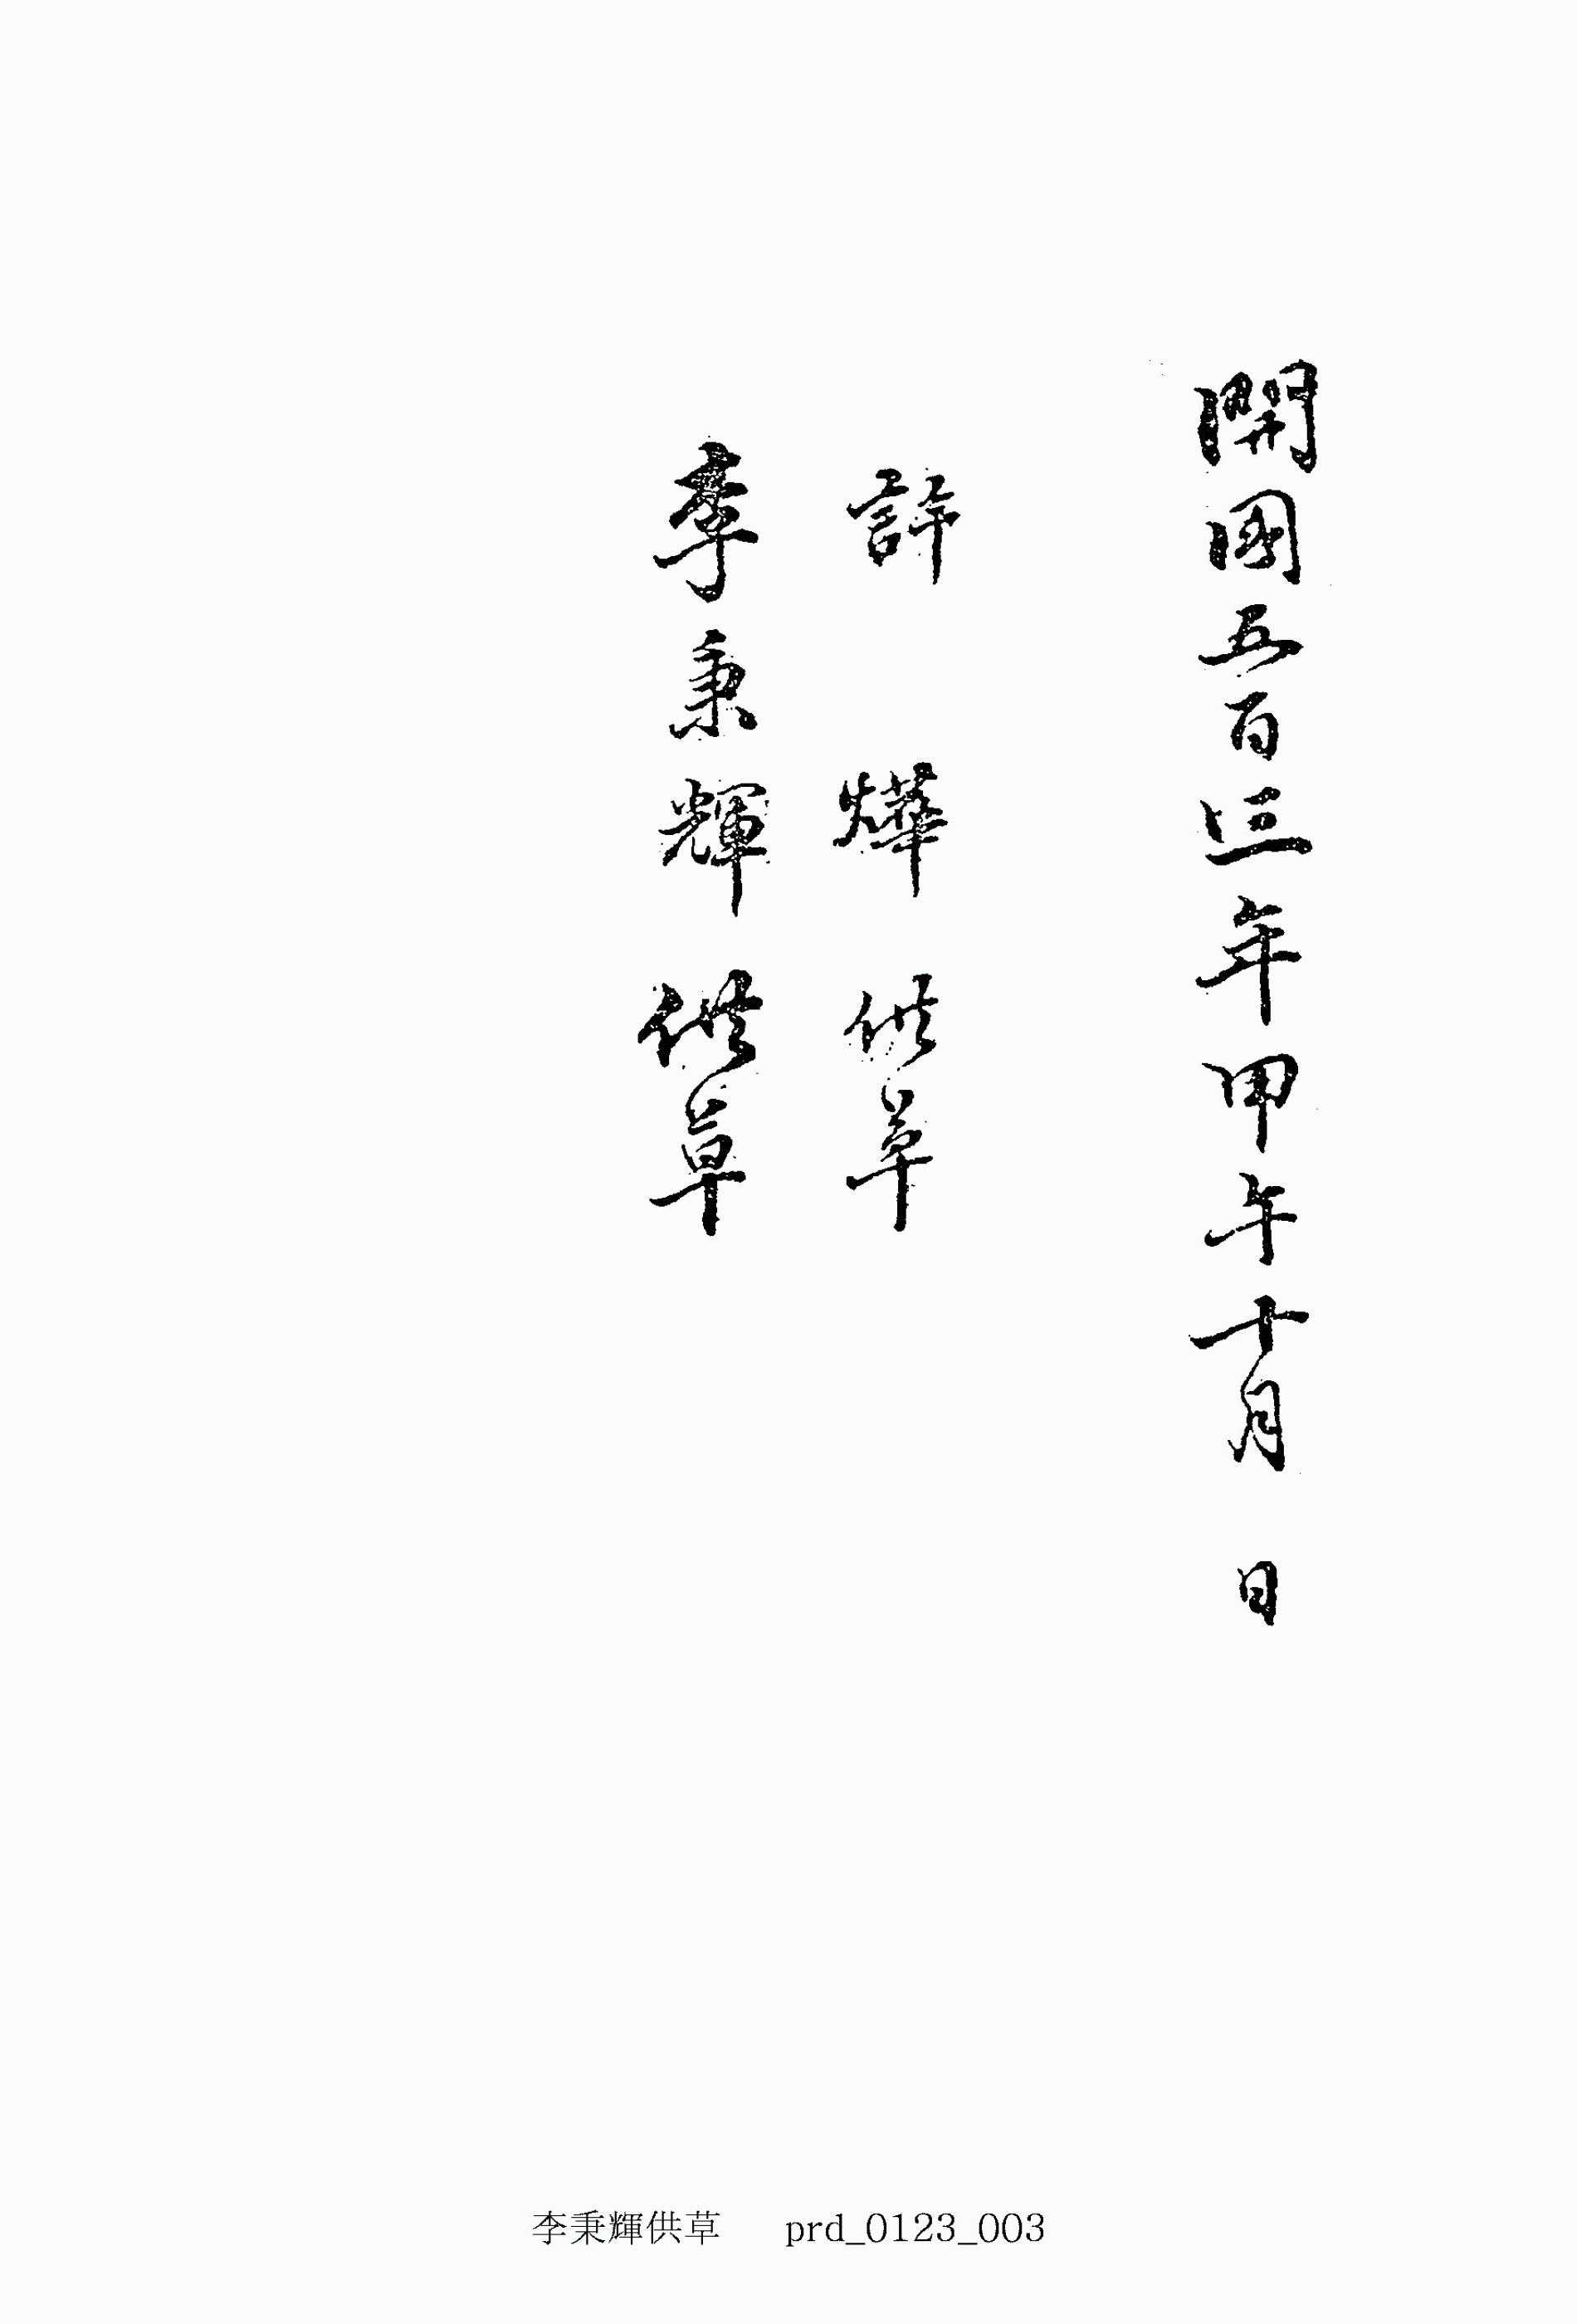 開國五百三年甲午十月 日
許 燁 供草
李秉輝供草
李秉輝供草 prd_0123_003